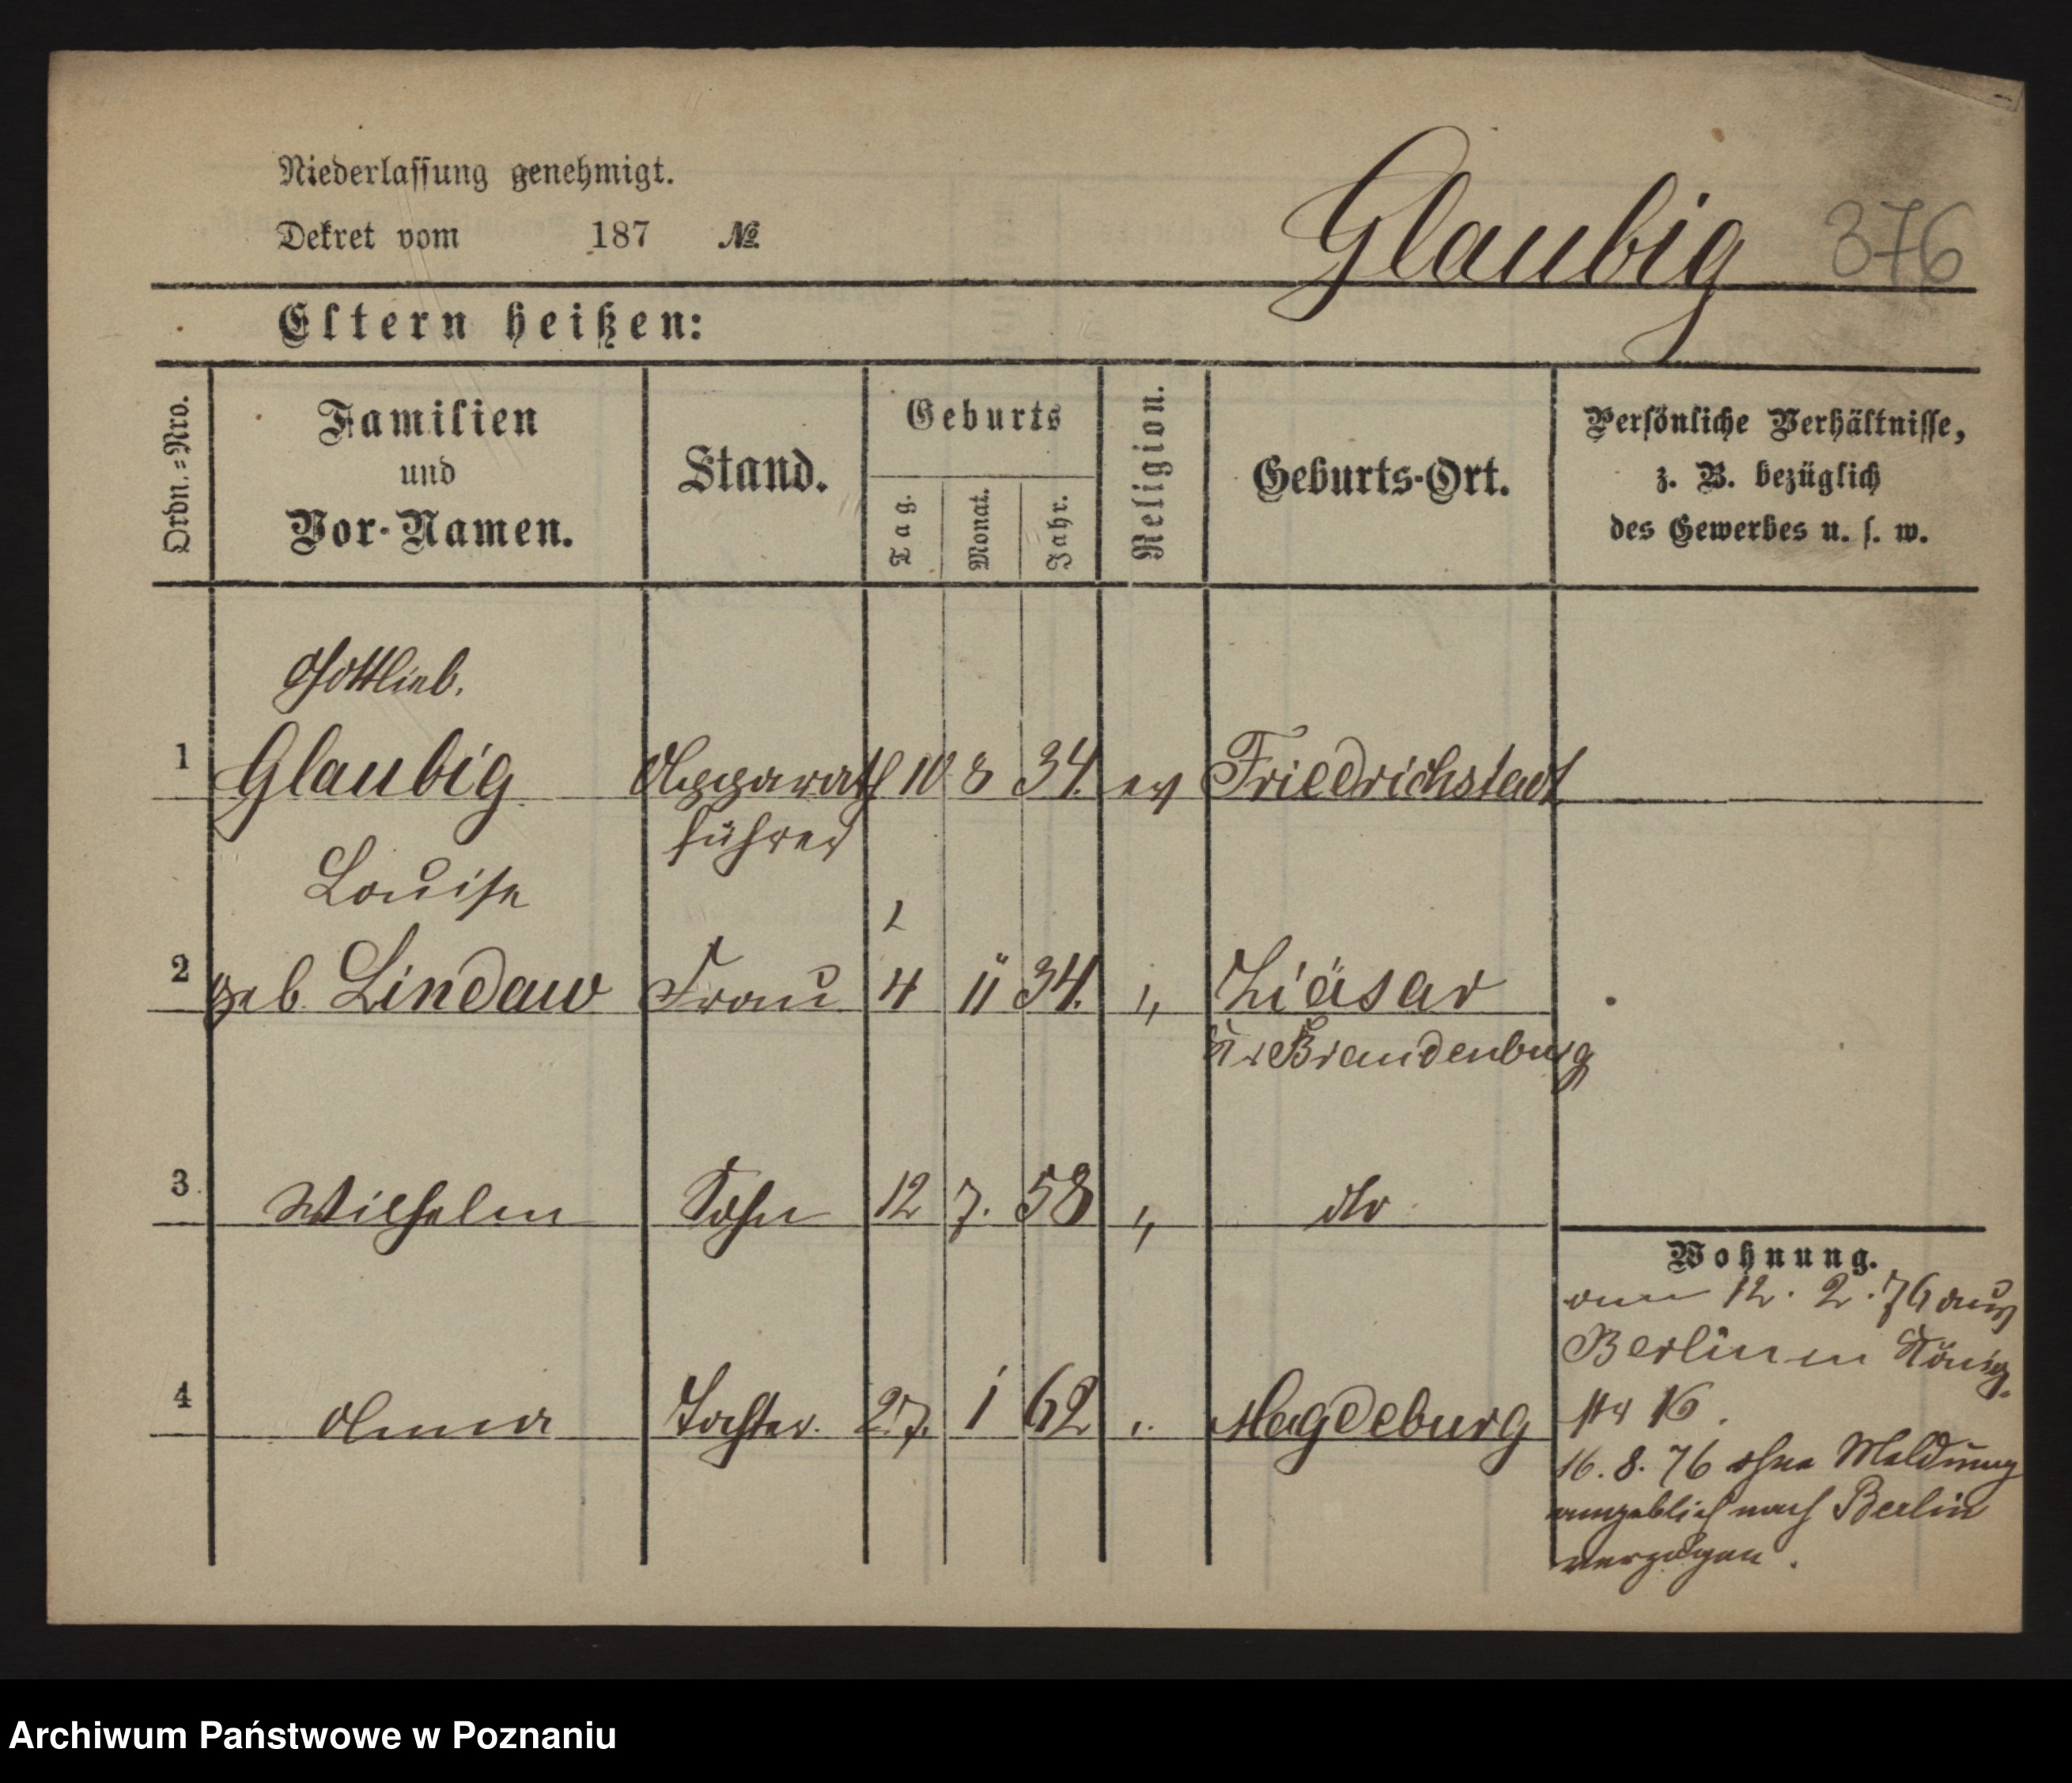 Niederlassung genehmigt.
Dekret vom 187 № Glaubig 376
Eltern heißen:
Ordn.=Nro. Familien und Vor-Namen. Stand. Geburts Tag. Monat. Jahr. Religion. Geburts-Ort. Persönliche Verhältnisse, z. B. bezüglich des Gewerbes u. s. w.
Gottlieb.
1 Glaubig Apparath 10 8 34. ev Friedrichstadt
führer
Louise
2 geb. Lindau Frau 4 11 34. " Ziesar
Kr Brandenburg
3. Wilhelm Sohn 12 7. 58 " do
Wohnung.
4 Anna Tochter. 27. 1 62 " Magdeburg
am 12. 2. 76 aus
Berlin n König
str 16.
16. 8. 76 ohne Meldung
angeblich nach Berlin
verzogen.
Archiwum Państwowe w Poznaniu